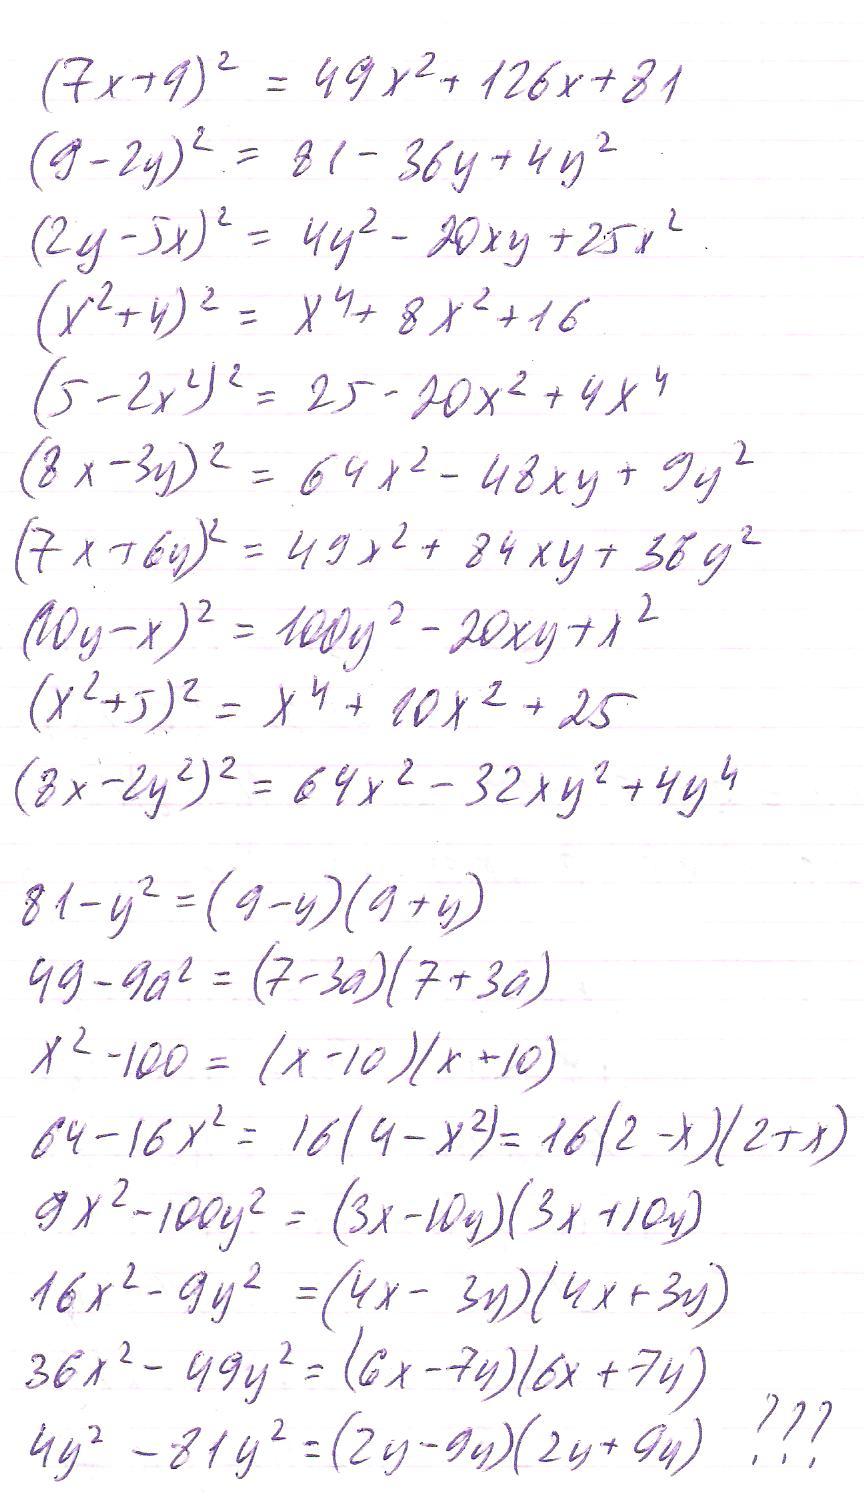 (7x+9)² = 49x² + 126x + 81
(9-2y)² = 81 - 36y + 4y²
(2y-5x)² = 4y² - 20xy + 25x²
(x²+4)² = x⁴ + 8x² + 16
(5-2x²)² = 25 - 20x² + 4x⁴
(8x-3y)² = 64x² - 48xy + 9y²
(7x+6y)² = 49x² + 84xy + 36y²
(10y-x)² = 100y² - 20xy + x²
(x²+5)² = x⁴ + 10x² + 25
(8x-2y²)² = 64x² - 32xy² + 4y⁴
81-y² = (9-y)(9+y)
49-9a² = (7-3a)(7+3a)
x²-100 = (x-10)(x+10)
64-16x² = 16(4-x²) = 16(2-x)(2+x)
9x²-100y² = (3x-10y)(3x+10y)
16x²-9y² = (4x-3y)(4x+3y)
36x²-49y² = (6x-7y)(6x+7y)
4y²-81y² = (2y-9y)(2y+9y) ???